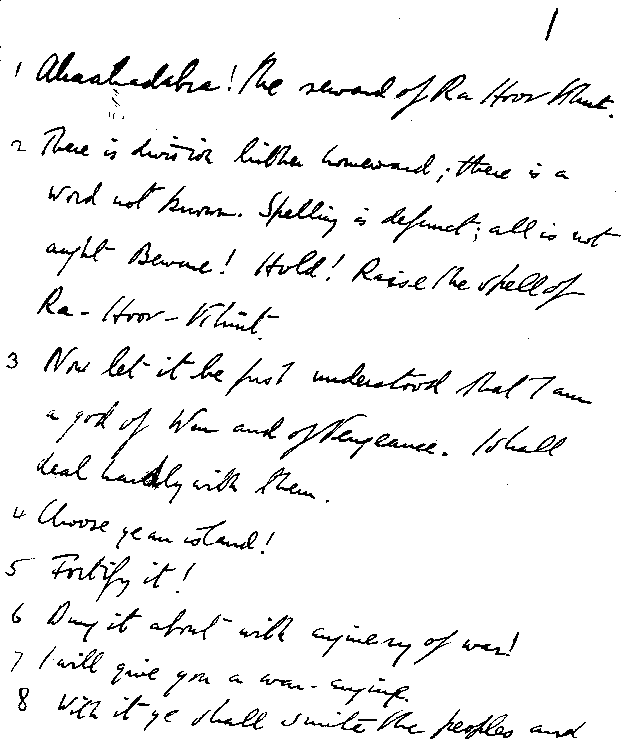 1
1 Abrahadabra! the reward of Ra Hoor Khut.
2 There is division hither homeward; there is a
word not known. Spelling is defunct; all is not
aught Beware! Hold! Raise the spell of
Ra-Hoor-Khuit.
3 Now let it be first understood that I am
a god of War and of Vengeance. I shall
deal hardly with them.
4 Choose ye an island!
5 Fortify it!
6 Dung it about with enginery of war!
7 I will give you a war-engine.
8 With it ye shall smite the peoples and